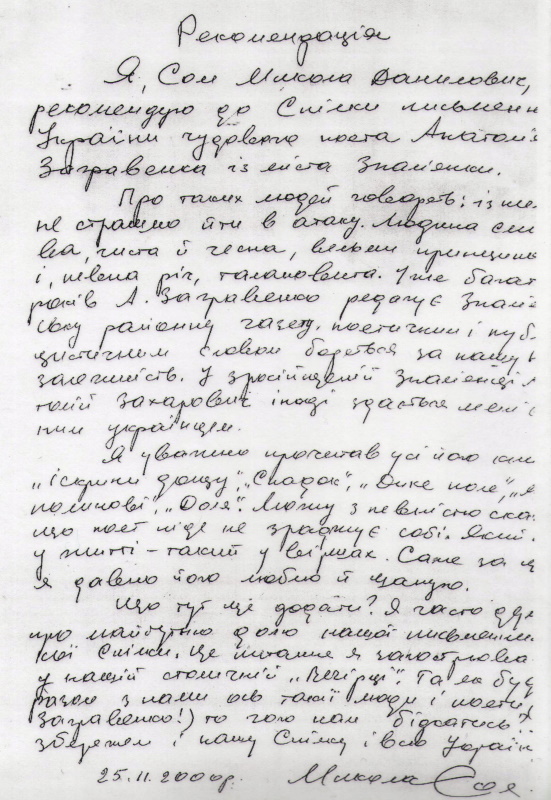 Рекомендація
Я, Сом Микола Данилович,
рекомендую до Спілки письменн
України чудового поета Анатолі
Загравенка із міста Знам'янки.
Про таких людей говорять: із ме
не страшно йти в атаку. Людина
ва, чиста й чесна, вельми принципо
і, певна річ, талановита. Уже багат
років А. Загравенко редагує Знам'я
ську районну газету. поетичним і публі
цистичним словом бореться за нашу
залежність. У зросійщеній Знам'янці
толій Захарович іноді здається мені
ним українцем.
Я уважно прочитав усі його кни
"іскрини дощу", "Спадок", "Дике поле",
полинові", "Доля". Можу з певністю ска
що поет ніде не зраджує собі. Який
у житті – такий у віршах. Саме за
я давно його люблю й шаную.
Що тут ще додати? Я часто дум
про майбутню долю нашої письменни
кої Спілки. Це питання я загострював
у нашій столичній "Вечірці". Та як буд
разом з нами ось такі люди і поети
Загравенко!) то чого нам бідкатись?
збережем і нашу Спілку і всю Україн
25.11.2000р. Микола Сом.